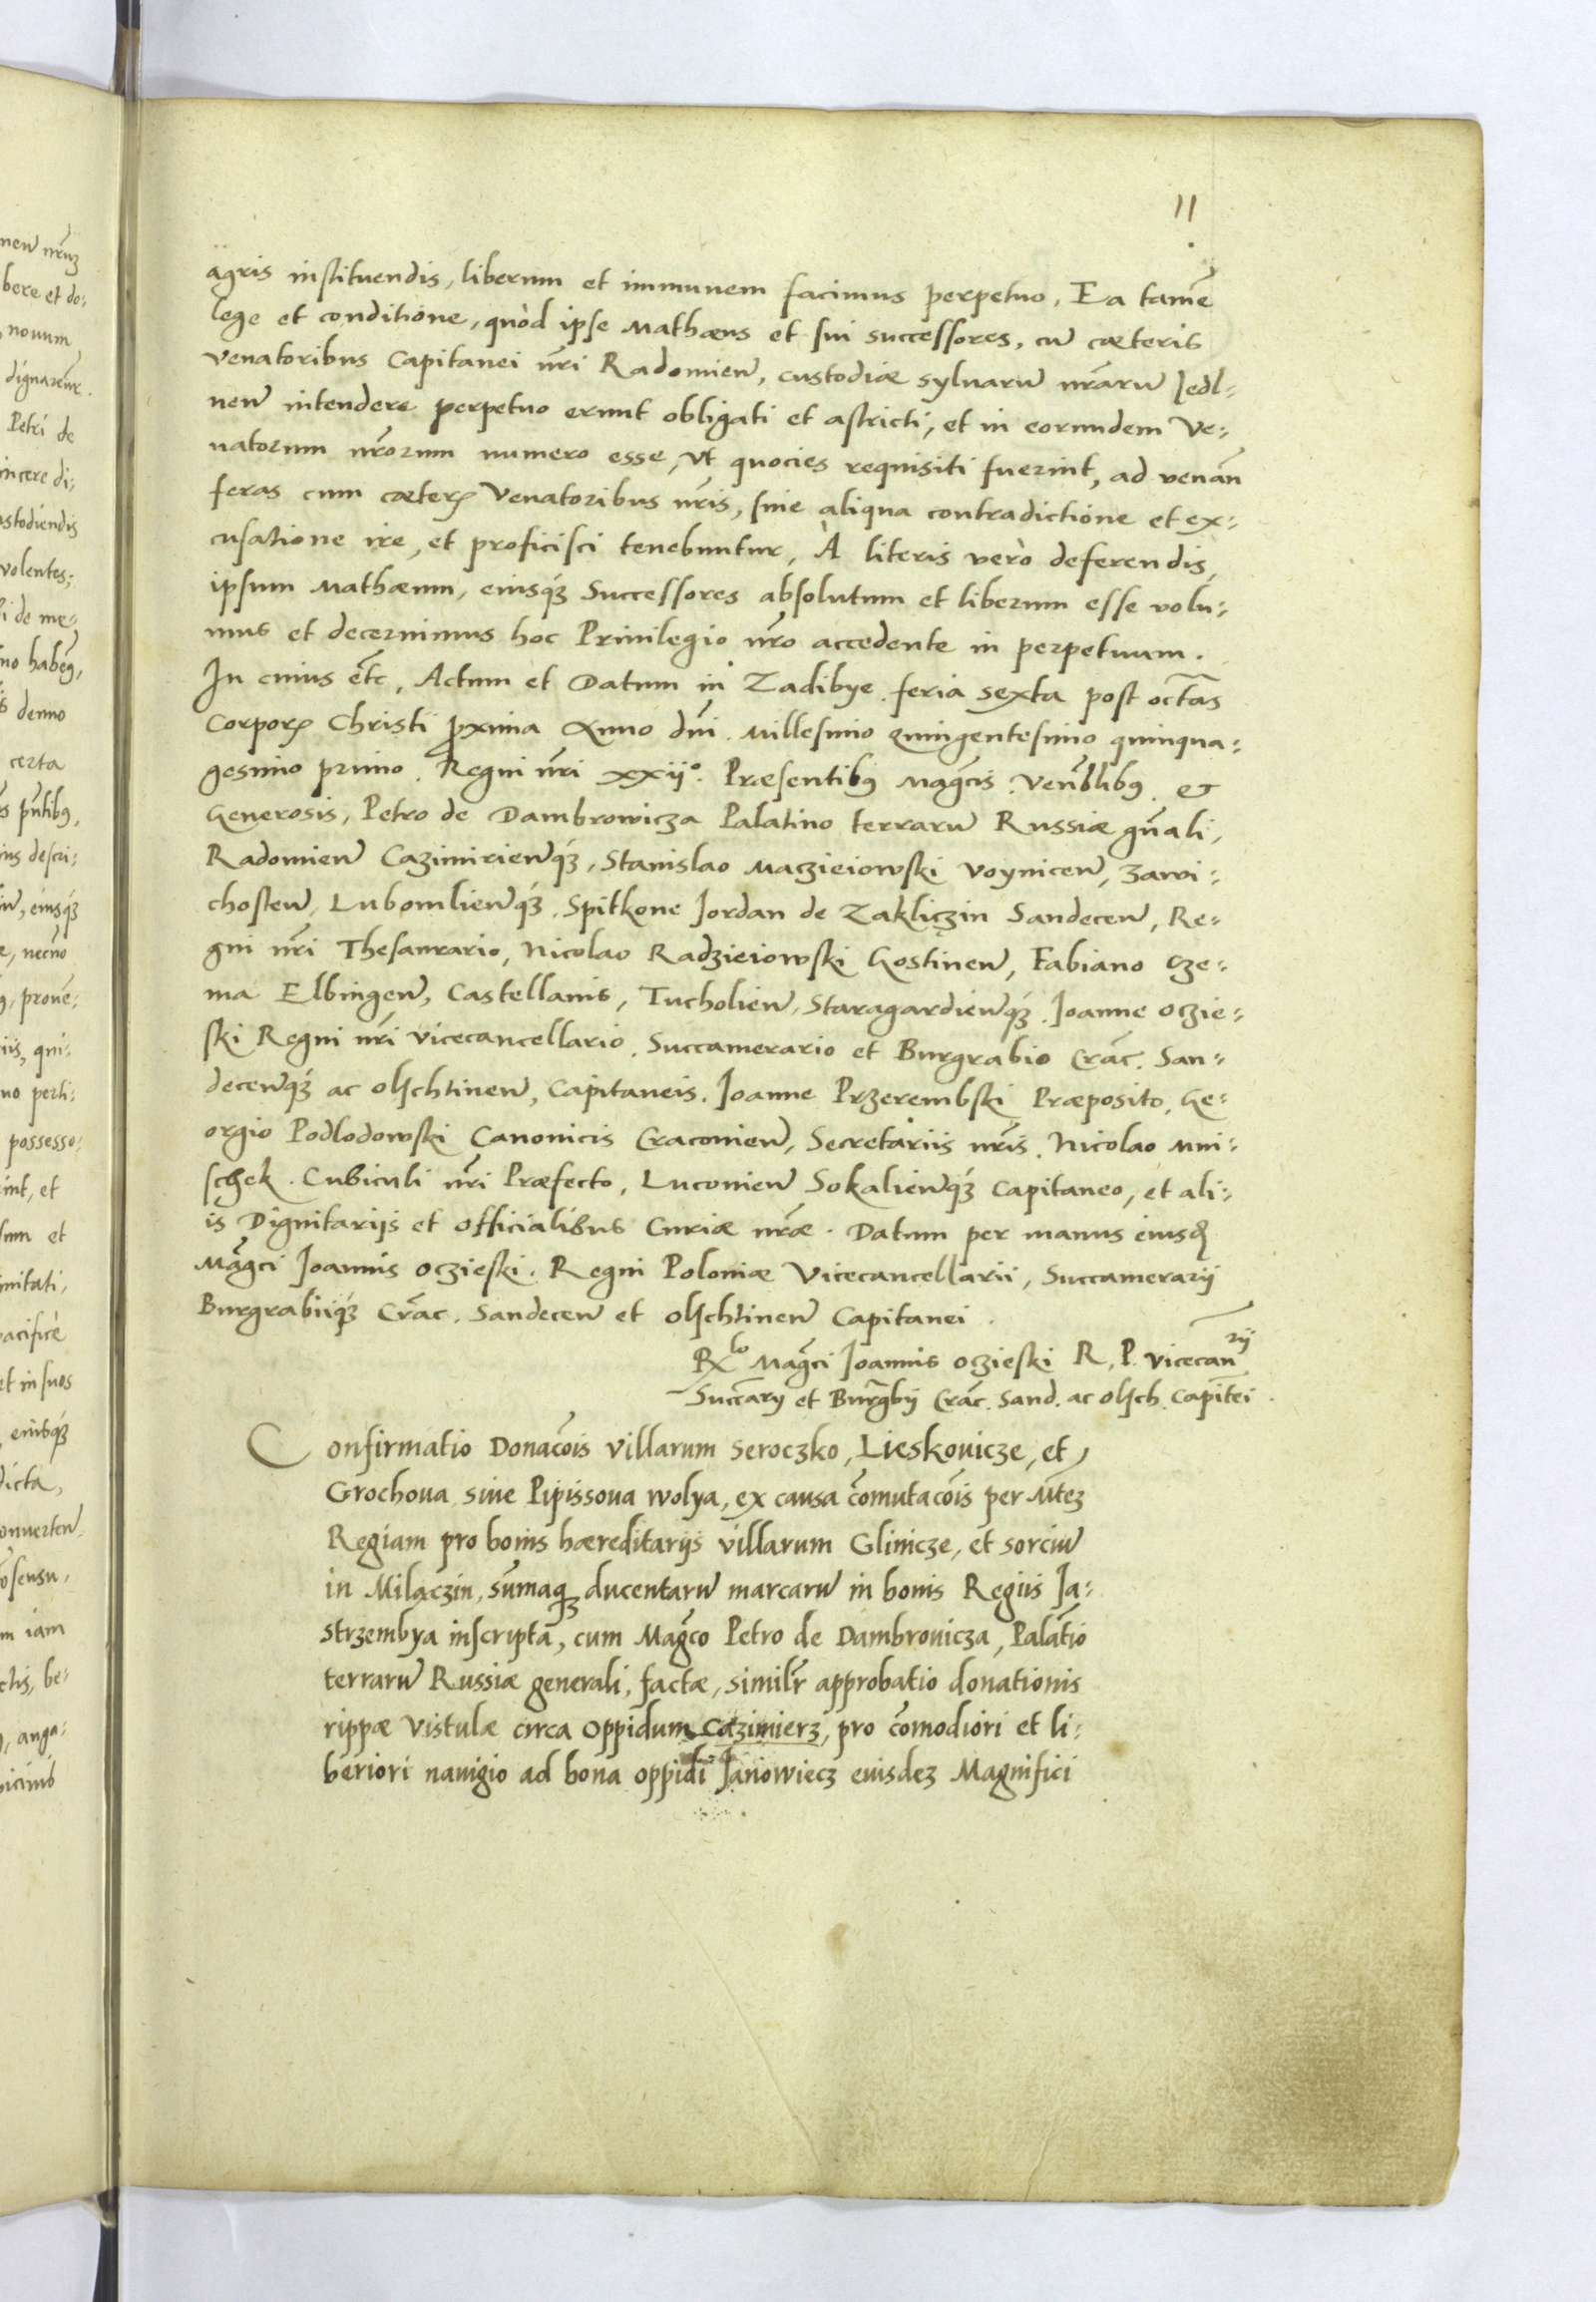 11
agris instituendis, liberum et immunem facimus perpetuo, Ea tamē
lege et conditione, quòd ipse Mathæus et sui successores, cū cæteris
venatoribus Capitanei nr̄i Radomieñ, custodiæ sylvarū nr̄arū Jedl-
neñ intendere perpetuo erunt obligati et astricti, et in eorundem Ve-
natorum nr̄orum numero esse, Vt quocies requisiti fuerint, ad venan̄
feras cum cæteris Venatoribus nr̄is, sine aliqua contradictione et ex-
cusatione ire, et proficisci tenebuntur, À literis verò deferendis,
ipsum Mathæum, eiusq́ꝫ Successores absolutum et liberum esse volu-
mus et decernimus hoc Privilegio nr̄o accedente in perpetuum.
In cuius etc̄, Actum et Datum in Zadibye feria sexta post octās
Corporis Christi ꝓxima Anno dn̄i. Millesimo quingentesimo quinqua-
gesimo primo. Regni nr̄i xxijº. Præsentibꝰ Magc̄is. Ven̄blibꝰ. et
Generosis, Petro de Dambrowicza Palatino terrarū Russiæ gn̄ali,
Radomieñ Cazimirieñq́ꝫ, Stanislao Maczieiowski Voyniceñ, Zawi-
chosteñ, Lubomlieñq́ꝫ, Spitkone Jordan de Zakliczin Sandeceñ, Re-
gni nr̄i Thesaurario, Nicolao Radzieiowski Gostineñ, Fabiano Cze-
ma Elbingeñ, Castellanis, Tucholieñ, Staragardieñq́ꝫ. Joanne Oczie-
ski Regni nr̄i vicecancellario. Succamerario et Burgrabio Crāc. San-
deceñq́ꝫ ac Olschtineñ, Capitaneis. Joanne Przerembski Præposito, Ge-
orgio Podlodowski Canonicis Cracouieñ, Secretariis nr̄is. Nicolao Mni-
schek. Cubiculi nr̄i Præfecto, Lucouieñ Sokalieñq́ꝫ Capitaneo, et ali-
is Dignitarijs et Officialibus Curiæ nr̄æ. Datum per manus eiusd̄
Magc̄i Joannis Oczieski. Regni Poloniæ Vicecancellarii, Succamerarij
Burgrabiiq́ꝫ Crāc. Sandeceñ et Olschtineñ Capitanei.
Rx̄lo Magc̄i Joannis Oczieski R. P. vicecan̄rij
Succ̄arij et Burḡbij Crāc. Sand. ac Olsch. Capitēi.
Confirmatio Donac̄ois villarum Seroczko, Lieskouicze, et
Grochoua siue Pipissoua wolya, ex causa com̄utac̄ois per Mt̄eꝫ
Regiam pro bonis hæreditarijs villarum Glinicze, et sorciū
in Milaczin, sum̄aqꝫ ducentarū marcarū in bonis Regiis Ja-
strzembya inscripta, cum Magc̄o Petro de Dambrouicza, Palat̄io
terrarū Russiæ generali, factæ, similr̄ approbatio donationis
rippæ Vistulæ circa Oppidum Cazimierz, pro com̄odiori et li-
beriori nauigio ad bona oppidi Janowiecz euisdeꝫ Magnifici